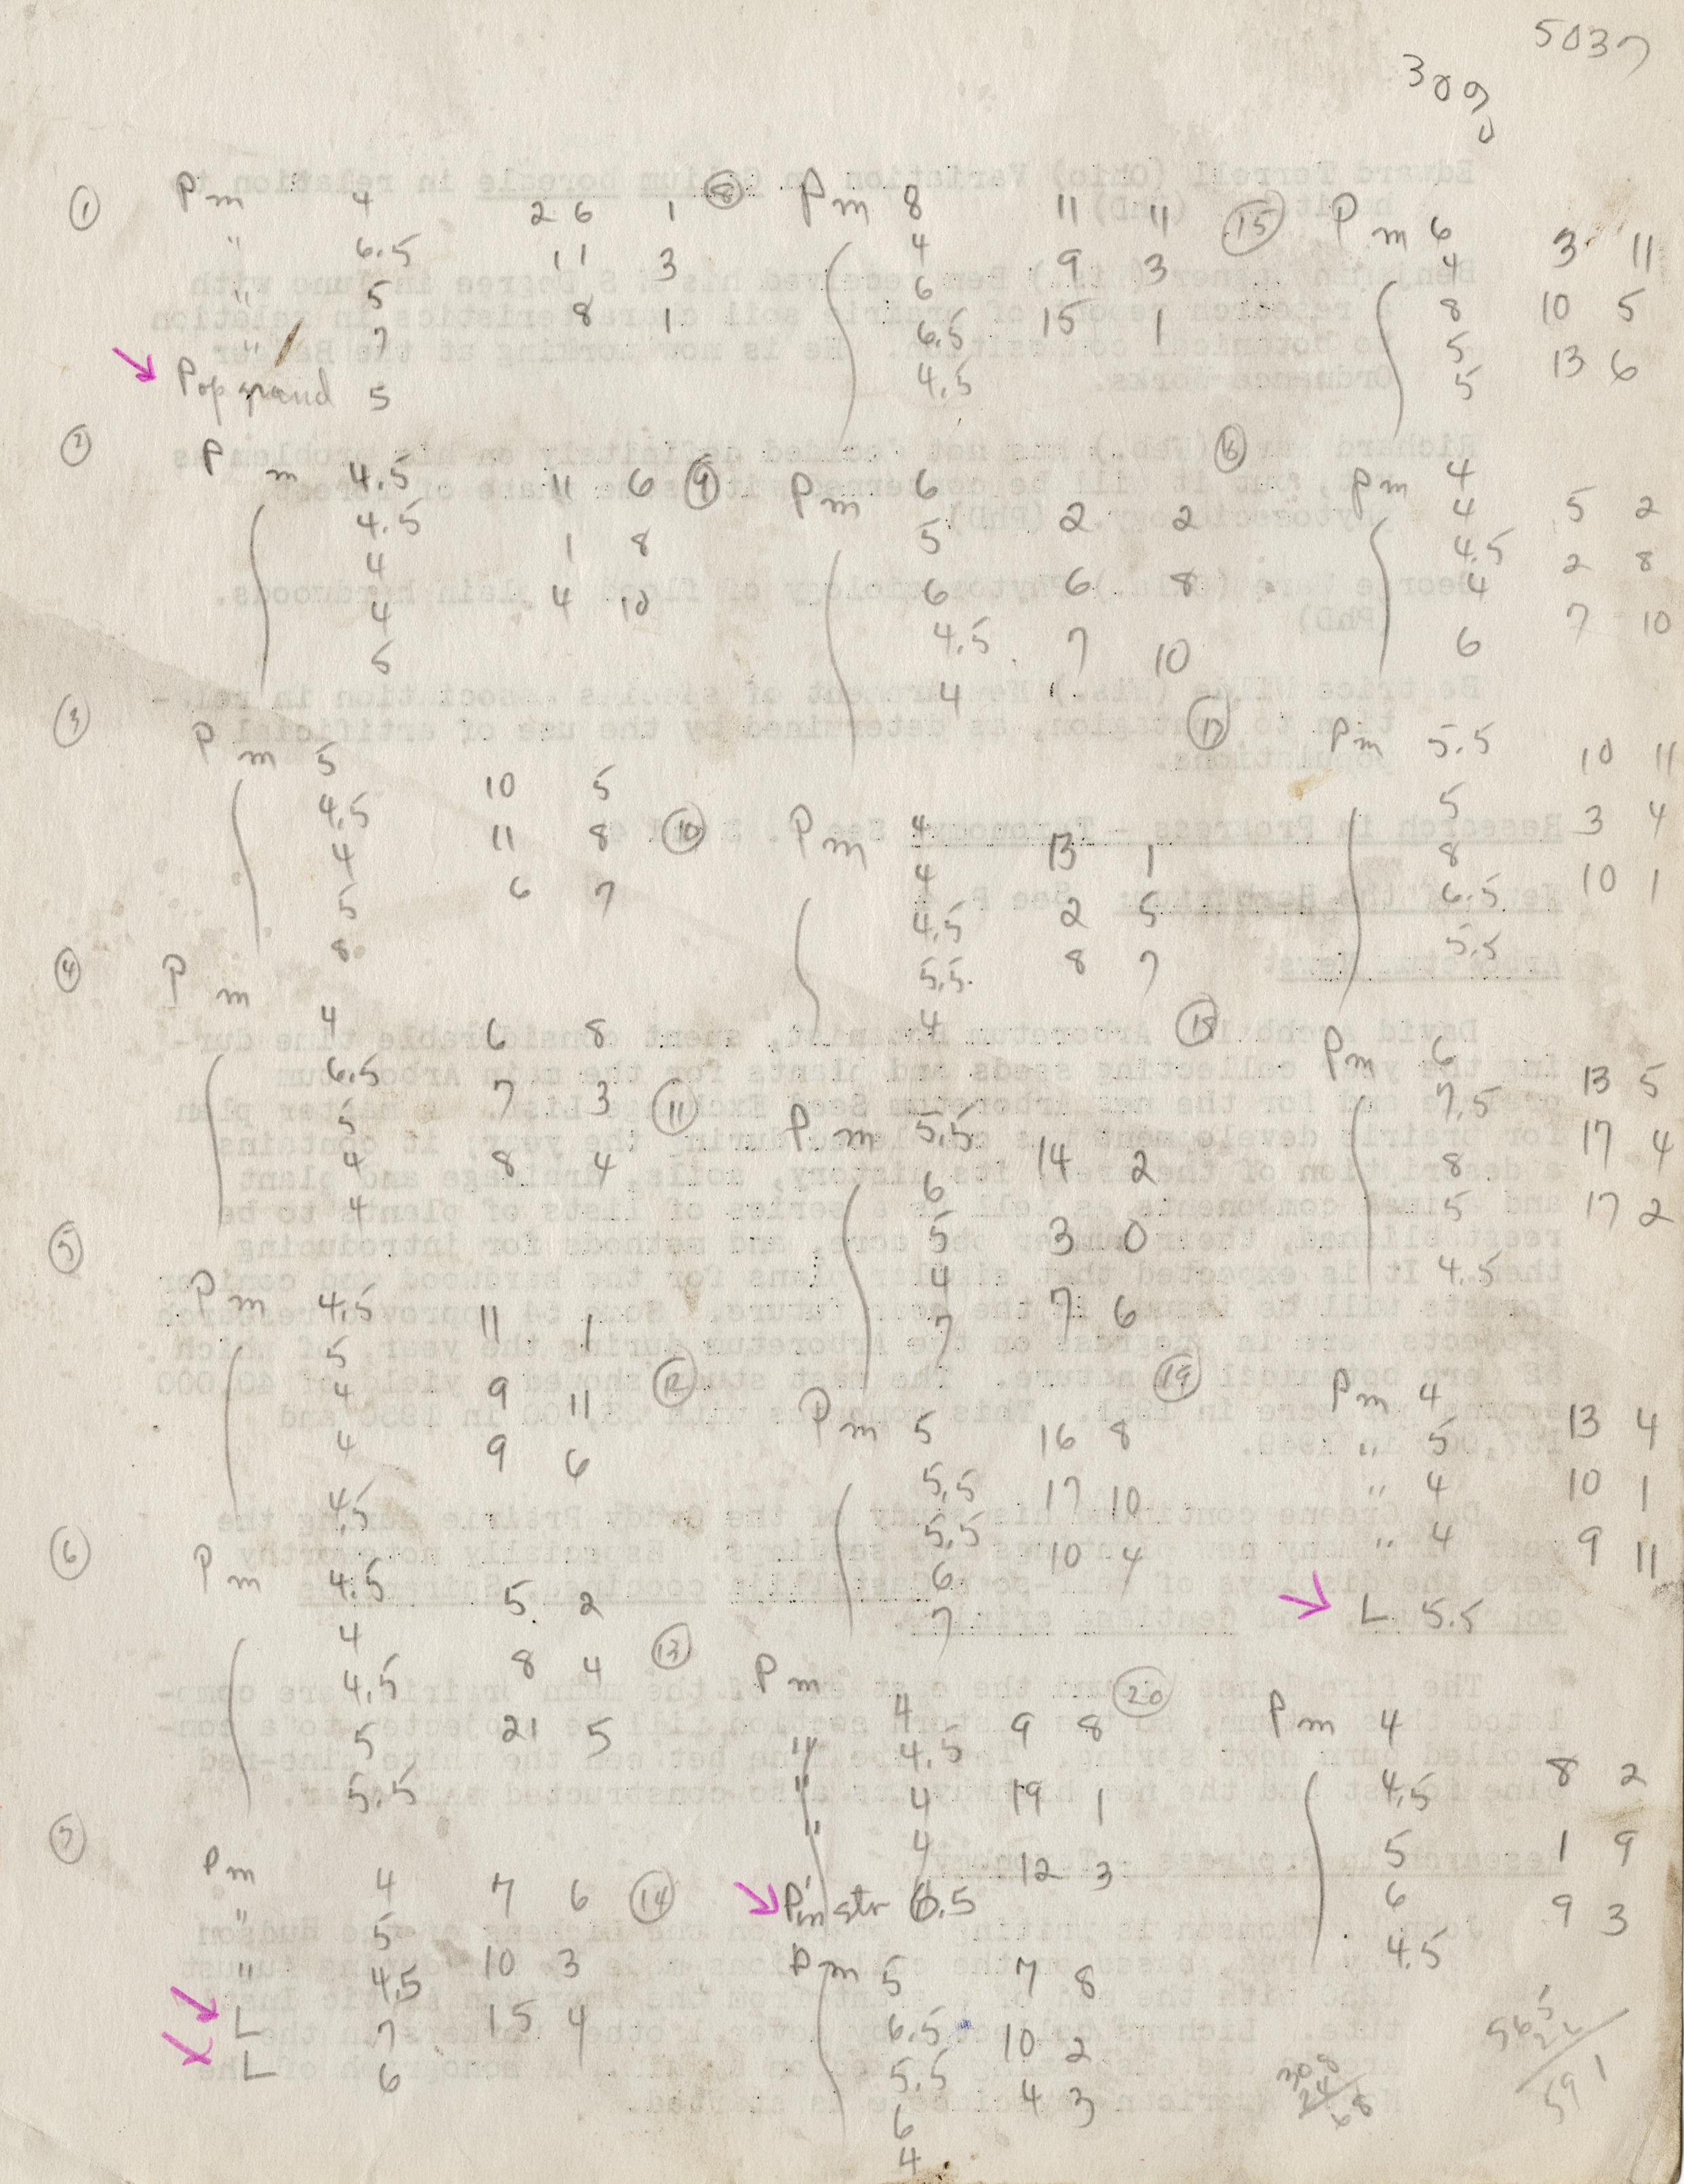 5037
309
① Pm 4 26 1
" 6.5 11 3
" 5 8 1
" 7
Pop grand 5
② Pm 4.5 11 6
4.5 1 8
4 4 10
4
5
③ Pm 5 10 5
4.5 11 8
4 6 7
5
8
④ Pm 4 6 8
6.5 7 3
5 8 4
4
4
⑤ Pm 4.5 11 1
5 9 11
4 9 6
4
4.5
⑥ Pm 4.5 5 2
4 8 4
4.5 21 5
5
5.5
⑦ Pm 4 7 6
" 5 10 3
" 4.5 15 4
L 7
L 6
⑧ Pm 8 11 11
4 9 3
6 15 1
6.5
4.5
⑨ Pm 6 2 2
5 6 8
6 7 10
4.5
4
⑩ Pm 4 13 1
4 2 5
4.5 8 7
5.5
4
⑪ Pm 5.5 14 2
6 3 0
5 7 6
4
7
⑫ Pm 5 16 8
5.5 17 10
5.5 10 4
6
7
⑬ Pm 4 9 8
" 4.5 19 1
" 4 12 3
" 4
Pin str 6.5
⑭ Pm 5 7 8
6.5 10 2
5.5 4 3
6
4
⑮ Pm 6 3 11
4 10 5
8 13 6
5
5
⑯ Pm 4 5 2
4 2 8
4.5 7 10
4
6
⑰ Pm 5.5 10 11
5 3 4
8 10 1
6.5
5.5
⑱ Pm 6 13 5
7.5 17 4
8 17 2
5
4.5
⑲ Pm 4 13 4
" 5 10 1
" 4 9 11
" 4
L 5.5
⑳ Pm 4 8 2
4.5 1 9
5 9 3
6
4.5
308
24
68
565
591